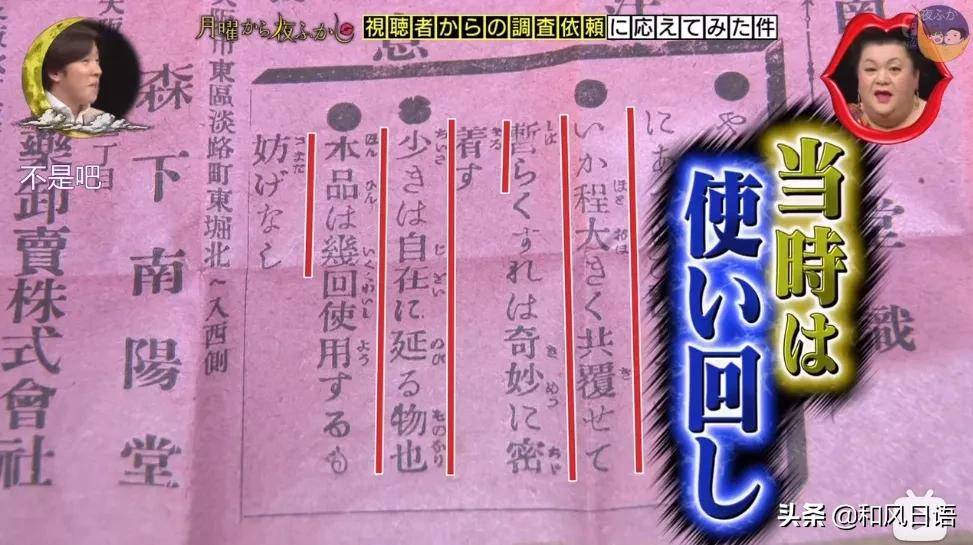 月曜から夜ふかし
視聴者からの調査依頼に応えてみた件
夜ふか
当時は
使い回し
いか程大きく共覆せて
暫らくすれは奇妙に密
着す
少きは自在に延る物也
本品は幾回使用するも
妨げなし
東區淡路町東堀北へ入西側
森下南陽堂
藥卸賣株式會社
不是吧
头条 @和风日语